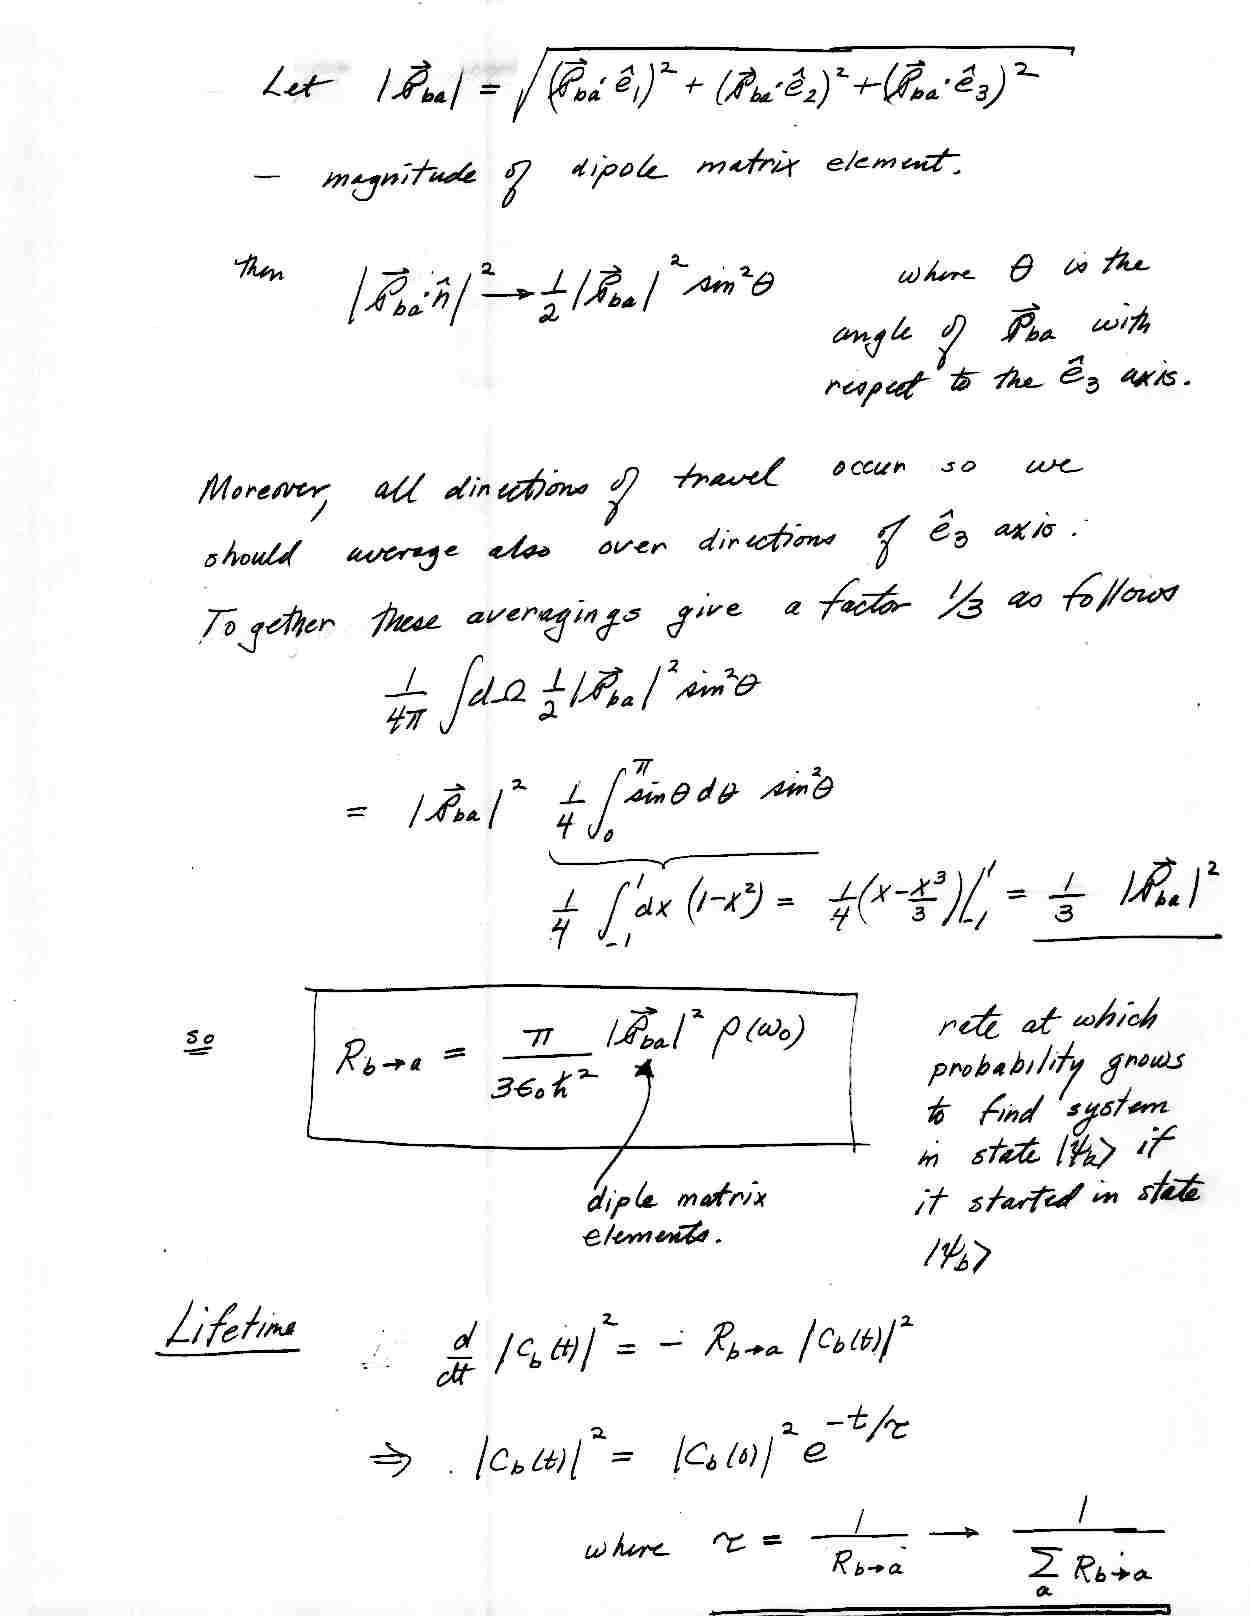 Let |𝒫⃗ba| = √((𝒫⃗ba·ê1)² + (𝒫⃗ba·ê2)² + (𝒫⃗ba·ê3)²)
— magnitude of dipole matrix element.
then |𝒫⃗ba·n̂|² → 1/2 |𝒫⃗ba|² sin²θ where θ is the
angle of 𝒫⃗ba with
respect to the ê3 axis.
Moreover, all directions of travel occur so we
should average also over directions of ê3 axis.
Together these averagings give a factor 1/3 as follows
1/4π ∫dΩ 1/2 |𝒫⃗ba|² sin²θ
= |𝒫⃗ba|² 1/4 ∫₀^π sinθ dθ sin²θ
1/4 ∫₋₁¹ dx (1-x²) = 1/4 (x - x³/3)|₋₁¹ = 1/3 |𝒫⃗ba|²
so R b→a = π/(3ε₀ħ²) |𝒫⃗ba|² ρ(ω₀)
rate at which
probability grows
to find system
in state |ψa> if
it started in state
|ψb>
diple matrix
elements.
Lifetime
d/dt |Cb(t)|² = - R b→a |Cb(t)|²
⇒ |Cb(t)|² = |Cb(0)|² e^(-t/τ)
where τ = 1/R b→a → 1/(Σa R b→a)